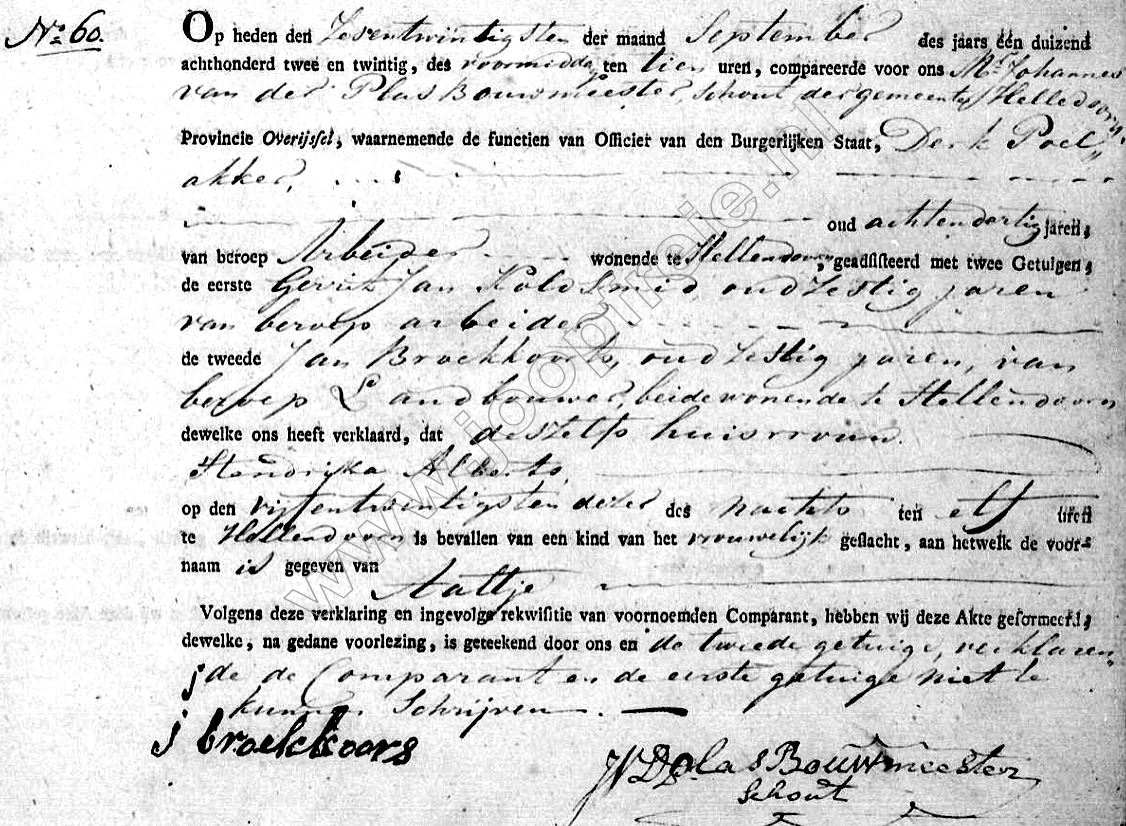 No. 60.
Op heden den Zesentwintigsten der maand September des jaars één duizend
achthonderd twee en twintig, des voormiddag ten tien uren, compareerde voor ons Mr. Johannes
van der Plas Bouwmeester, Schout der gemeente Hellendoorn,
Provincie Overijssel, waarnemende de functien van Officier van den Burgerlijken Staat, Derk Poel„
akker,
oud achtendertig jaren,
van beroep Arbeider wonende te Hellendoorn, geadsisteerd met twee Getuigen,
de eerste Gerrit Jan Koldsmid, oud Zestig jaren
van beroep arbeider,
de tweede Jan Broekkoorts, oud Zestig jaren, van
beroep Landbouwer, beide wonende te Hellendoorn
dewelke ons heeft verklaard, dat deszelfs huisvrouw
Hendrika Alberts,
op den vijfentwintigsten dezer des nachts ten elf uren
te Hellendoorn is bevallen van een kind van het vrouwelijk geslacht, aan hetwelk de voor-
naam is gegeven van Aaltje
Volgens deze verklaring en ingevolge rekwisitie van voornoemden Comparant, hebben wij deze Akte geformeerd,
dewelke, na gedane voorlezing, is geteekend door ons en de tweede getuige, verklaren„
de de Comparant en de eerste getuige niet te
kunnen Schrijven.
j broekkoors
JVDPlas Bouwmeester
Schout
www.joopincie.nl